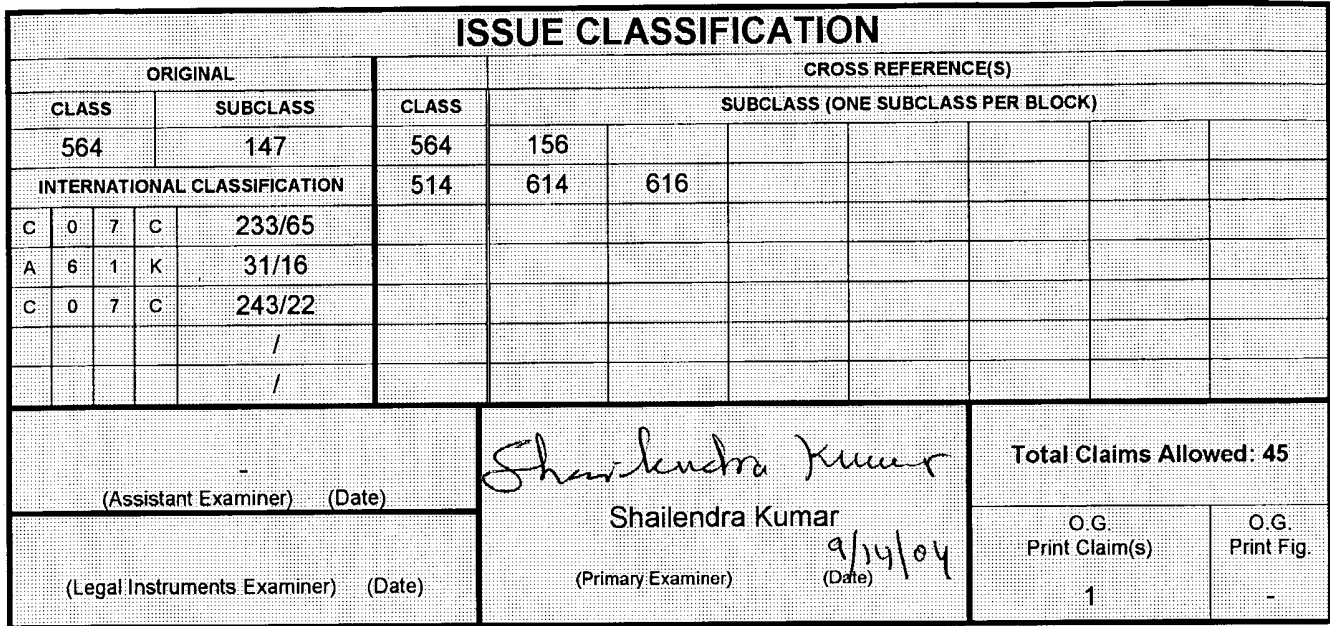 ISSUE CLASSIFICATION
ORIGINAL CROSS REFERENCE(S)
CLASS SUBCLASS CLASS SUBCLASS (ONE SUBCLASS PER BLOCK)
564 147 564 156
INTERNATIONAL CLASSIFICATION 514 614 616
C 0 7 C 233/65
A 6 1 K 31/16
C 0 7 C 243/22
/
/
-
(Assistant Examiner) (Date)
(Legal Instruments Examiner) (Date)
Shailendra Kumar
Shailendra Kumar
9/14/04
(Primary Examiner) (Date)
Total Claims Allowed: 45
O.G. Print Claim(s)
1
O.G. Print Fig.
-